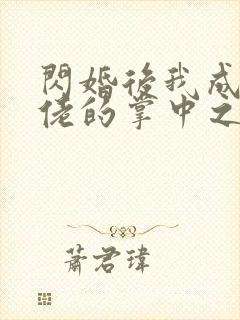 閃婚後我成
佬的掌中之
蕭君瑋